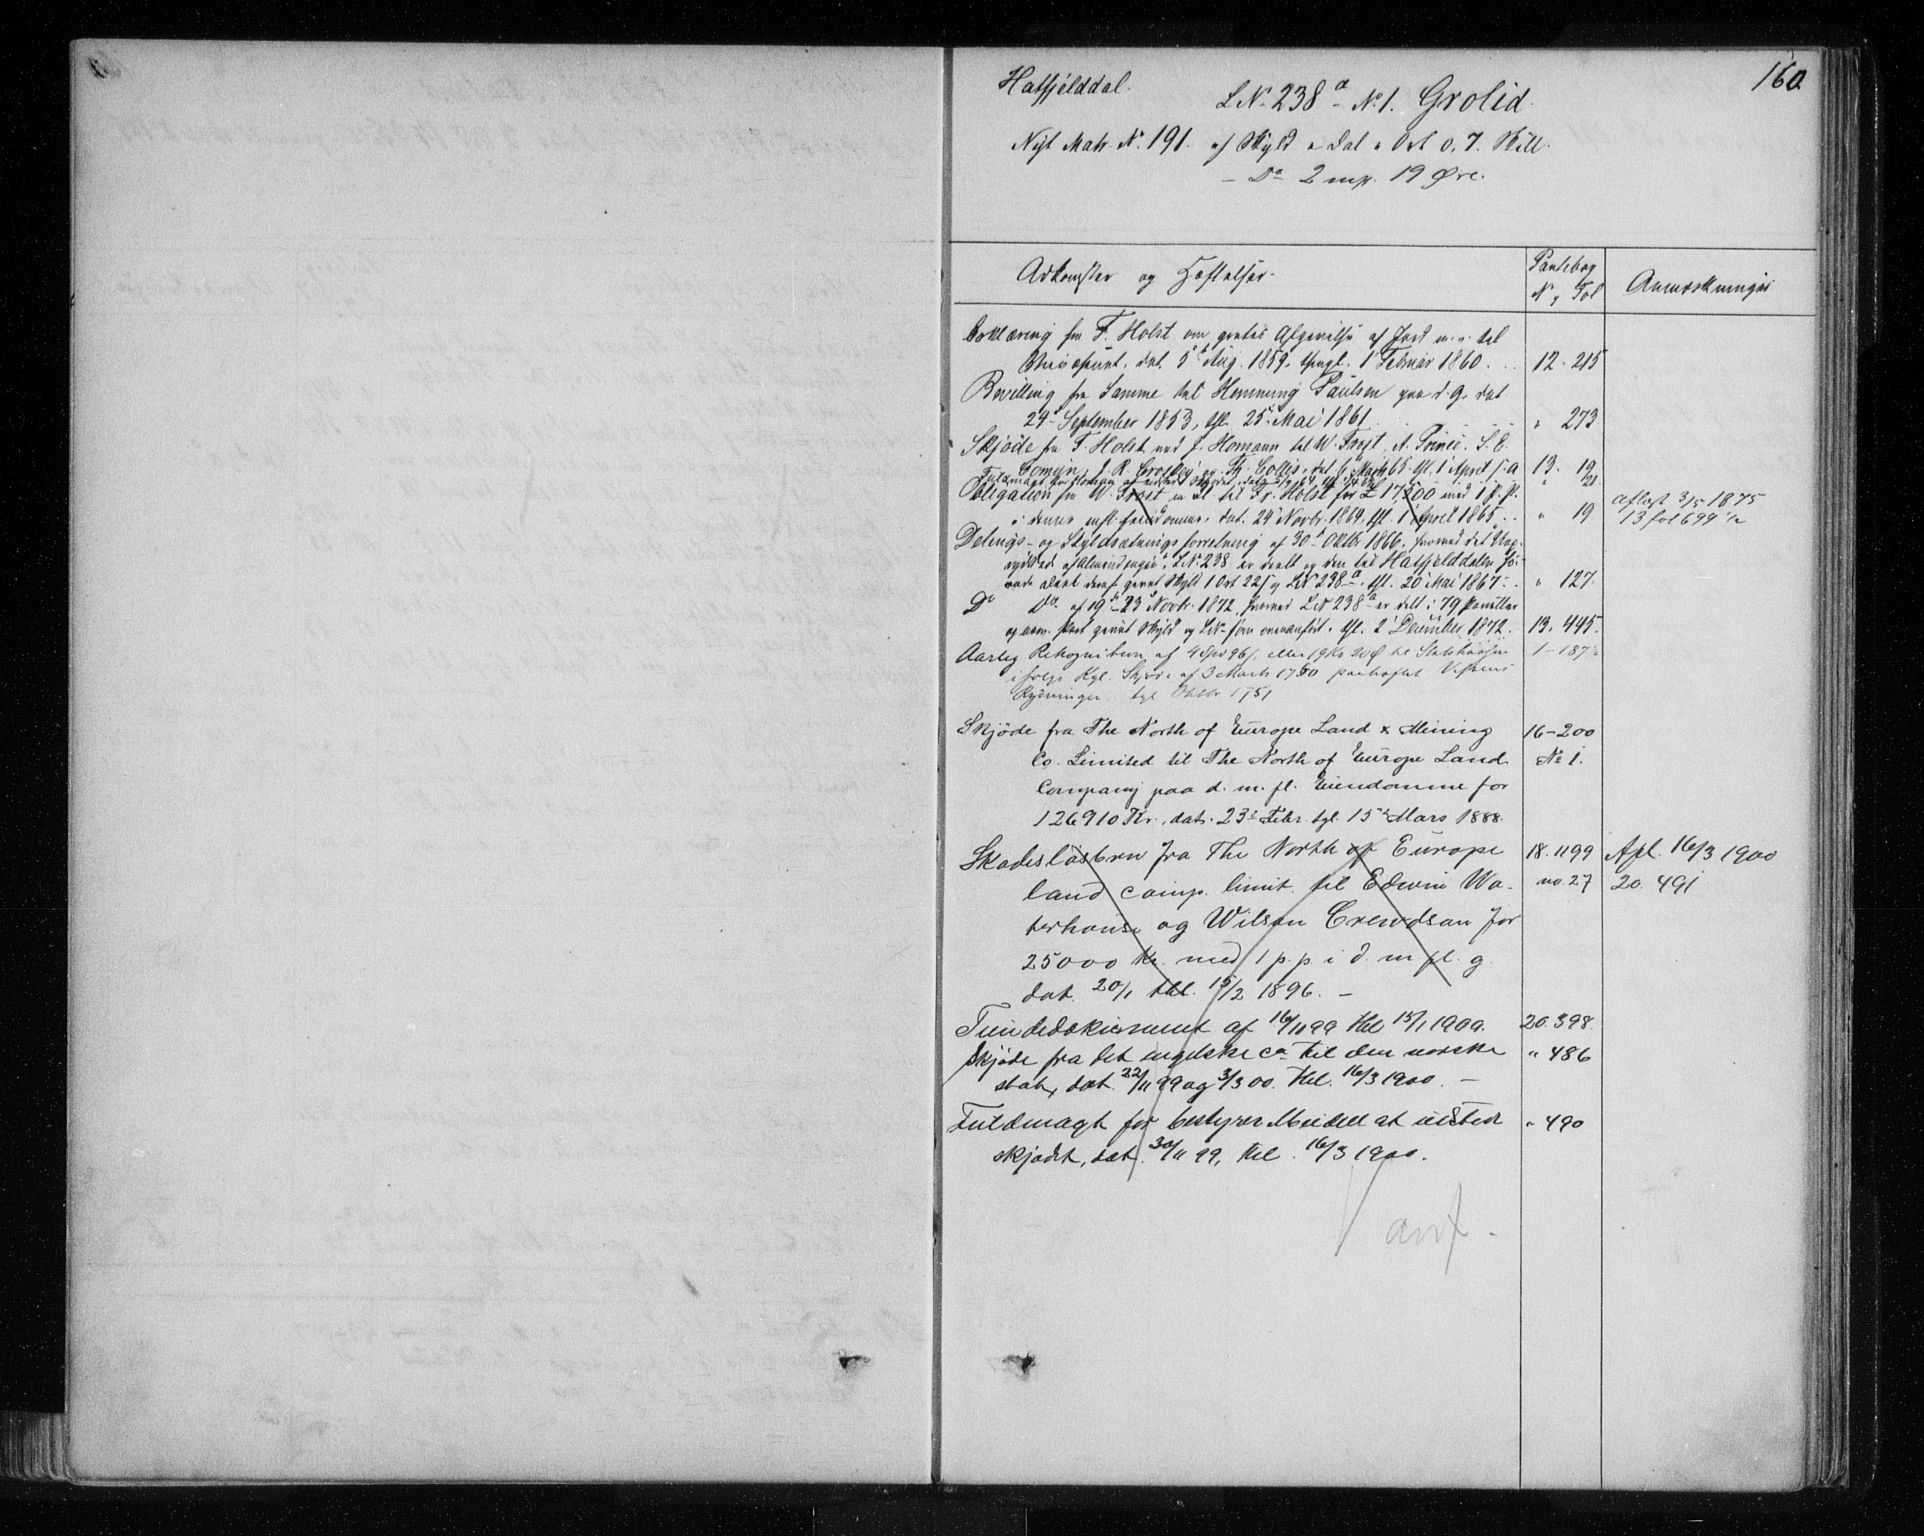 160
Hatfjelddal.
L.No 238 a No 1. Grolid.
Nyt Matr. No 191. af Skyld " Dal " Ort 0, 7. Skill.
— Do 2 mk. 19 Øre.
Adkomster og Hæftelser.
Pantebog
N. og Fol
Anmærkninger
Erklæring fra F. Holst om gratis Afgivelse af Jord m.v. til
dat. 5t Aug. 1859, thingl. 1 Februar 1860. 12. 215
Bevilling fra Samme til Hemming Paulsen paa d. G. dat
24 September 1853, thl. 25 Mai 1861 " 273
Skjøde fra F. Holst ved J. Homann til W. Frost, A. Prince. S. E.
Comyn, J. R. Crosley og Th. Collis, dat 6 Marts 65. thl. 1 April s. A 13. 19
21
Obligation fra W. Frost m fl til Fr. Holst for £ 17500 med 1 p. p.
i denne mfl. Eiendomme, dat. 24 Novbr. 1864, thl. 1 April 1865 " 19
aflæst 3/5 1875
13 fol 699 1/2
Delings- og Skyldsætningsforretning af 30 Oktbr 1866, hvorved det
af Almindingen L.No. 238 er delt og den til Hatfjelddalen
Deel deraf givet Skyld 1 Ort 22 s og LNo 238 a, thl. 20 Mai 1867. " 127.
Do Do. af 19 - 23 Novbr. 1872, hvorved LNo 238 a er delt i 79 Parceller
og givet Skyld og LNo som ovenanført. thl. 2 December 1872. 13. 445.
Aarlig Rekognition af 4 Spd 96 s. eller 19 Kr 20 Ø til Statskassen 1-187
ifølge Kgl. Skjøde af 3 Marts 1750 paahæftet Vefsens
Rydninger. tgl Oktbr 1751
Skjøde fra The North of Europe Land & Mining 16-200
Co. Limited til The North of Europe Land No 1.
Company paa d. m. fl. Eiendomme for
126910 Kr., dat. 23 Febr. tgl. 15 Mars 1888.
Skadesløsbrev fra The North of Europe 18. 1199 Afl. 16/3 1900
land comp. limit. til Edwin Wa- no. 27 20. 491
terhouse og Wilson Crewdson for
25000 Kr. med 1 p. p. i d. m fl. g.
dat. 20/1 thl. 15/2 1896. —
Tiendedokument af 16/11 99 thl 15/1 1900. 20. 398.
Skjøde fra det engelske co til den norske " 486
stat, dat. 22/11 99 og 3/3 00. thl. 16/3 1900. —
Fuldmagt for bestyrer Meidell at udstede " 490
skjødet, dat. 30/11 99, thl. 16/3 1900.